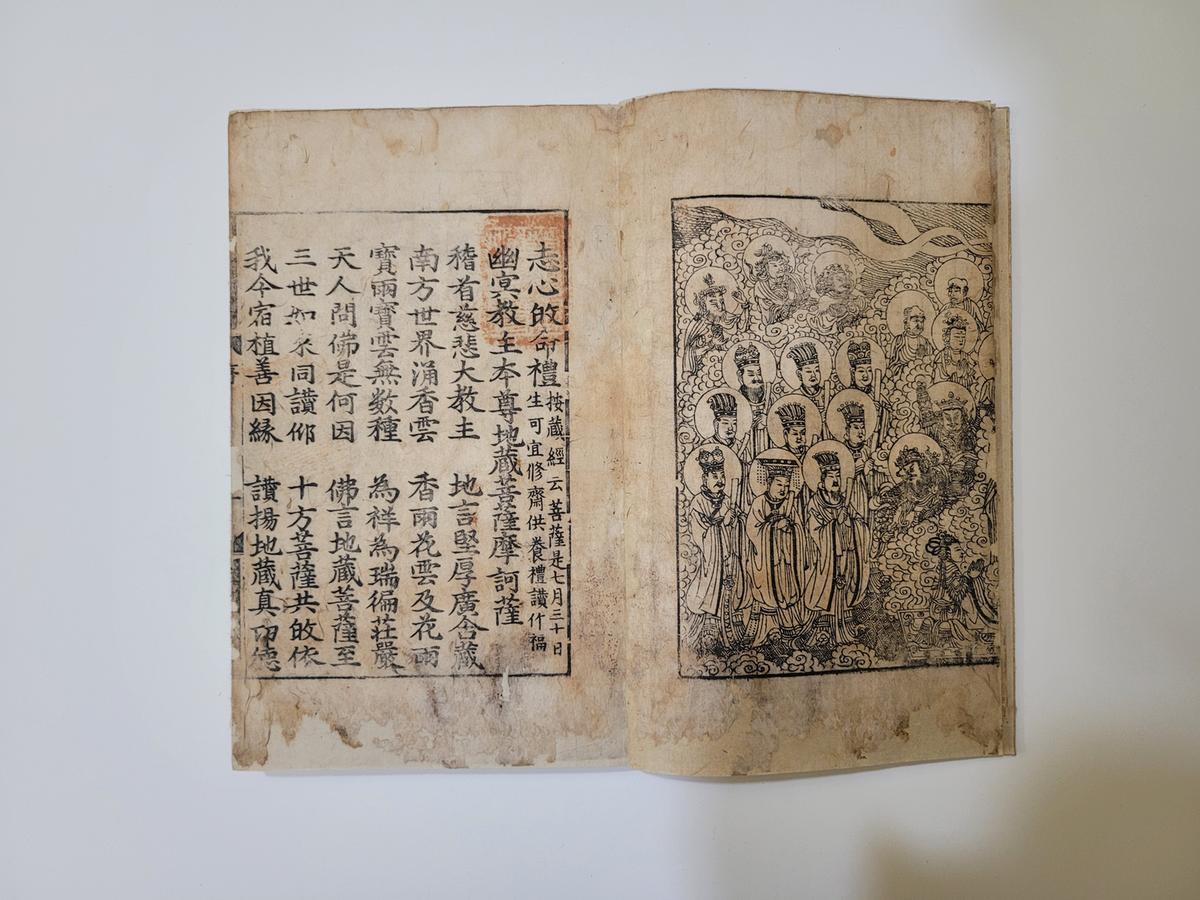 志心皈命禮
按藏經云菩薩是七月三十日
生可宜修齋供養禮讃什福
幽冥教主本尊地藏菩薩摩訶薩
稽首慈悲大教主 地言堅厚廣含藏
南方世界涌香雲 香雨花雲及花雨
寶雨寶雲無數種 為祥為瑞徧莊嚴
天人問佛是何因 佛言地藏菩薩至
三世如來同讃仰 十方菩薩共皈依
我今宿植善因緣 讃揚地藏真功德